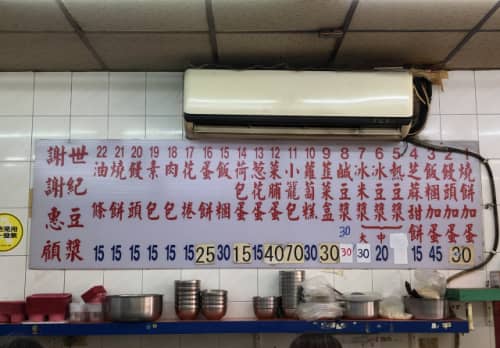 1 燒餅加蛋
2 饅頭加蛋 30
3 飯糰加蛋 45
4 芝麻甜餅 15
5 熱豆漿
6 冰豆漿 中 20
7 冰米漿 大 30
8 鹹豆漿 30 30
9 韮菜盒 30
10 蘿蔔糕 30
11 小籠包 70
12 菜脯蛋 40
13 蔥花蛋 15
14 荷包蛋 15
15 飯糰 30
16 蛋餅 25
17 花捲 15
18 肉包 15
19 素包 15
20 饅頭 15
21 燒餅 15
22 油條 15
世紀豆漿
謝謝惠顧